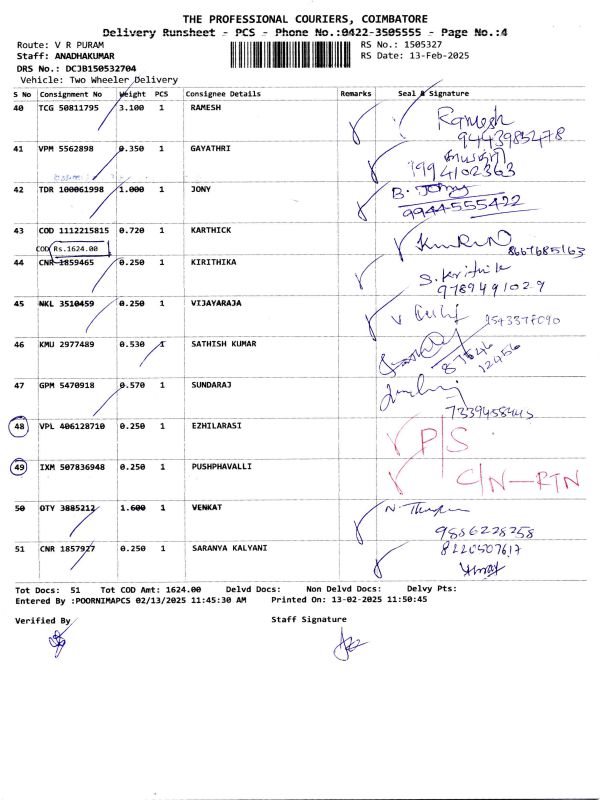 THE PROFESSIONAL COURIERS, COIMBATORE
Delivery Runsheet - PCS - Phone No.:0422-3505555 - Page No.:4
Route: V R PURAM RS No.: 1505327
Staff: ANADHAKUMAR RS Date: 13-Feb-2025
DRS No.: DCJB150532704
Vehicle: Two Wheeler Delivery
S No Consignment No Weight PCS Consignee Details Remarks Seal & Signature
40 TCG 50811795 3.100 1 RAMESH Ramesh
9443985478
41 VPM 5562898 0.350 1 GAYATHRI
7994102363
42 TDR 100061998 1.000 1 JONY B. Jony
9944555422
43 COD 1112215815 0.720 1 KARTHICK
8667685163
COD Rs.1624.00
44 CNR 1859465 0.250 1 KIRITHIKA S. Krithik
9789491029
45 NKL 3510459 0.250 1 VIJAYARAJA V
46 KMU 2977489 0.530 1 SATHISH KUMAR
87546
12456
47 GPM 5470918 0.570 1 SUNDARAJ
7339458445
48 VPL 406128710 0.250 1 EZHILARASI P/S
49 IXM 507836948 0.250 1 PUSHPHAVALLI C/N-RTN
50 OTY 3885212 1.600 1 VENKAT
9886228258
51 CNR 1857927 0.250 1 SARANYA KALYANI 8220507617
Tot Docs: 51 Tot COD Amt: 1624.00 Delvd Docs: Non Delvd Docs: Delvy Pts:
Entered By :POORNIMAPCS 02/13/2025 11:45:30 AM Printed On: 13-02-2025 11:50:45
Verified By Staff Signature